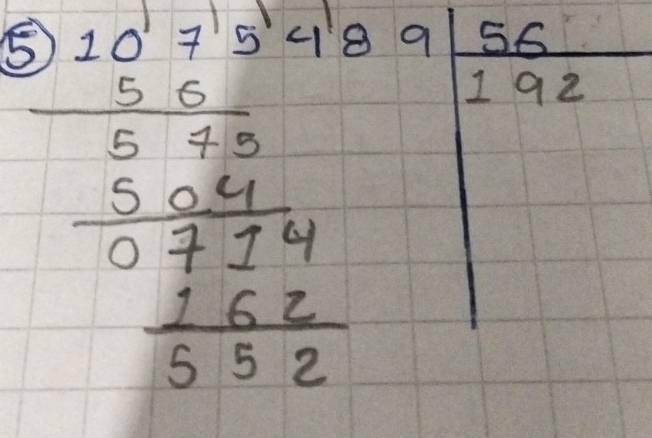 5) 10'7'5'4'8 9 | 56
5 6 192
5 75
5 04
0 714
162
552